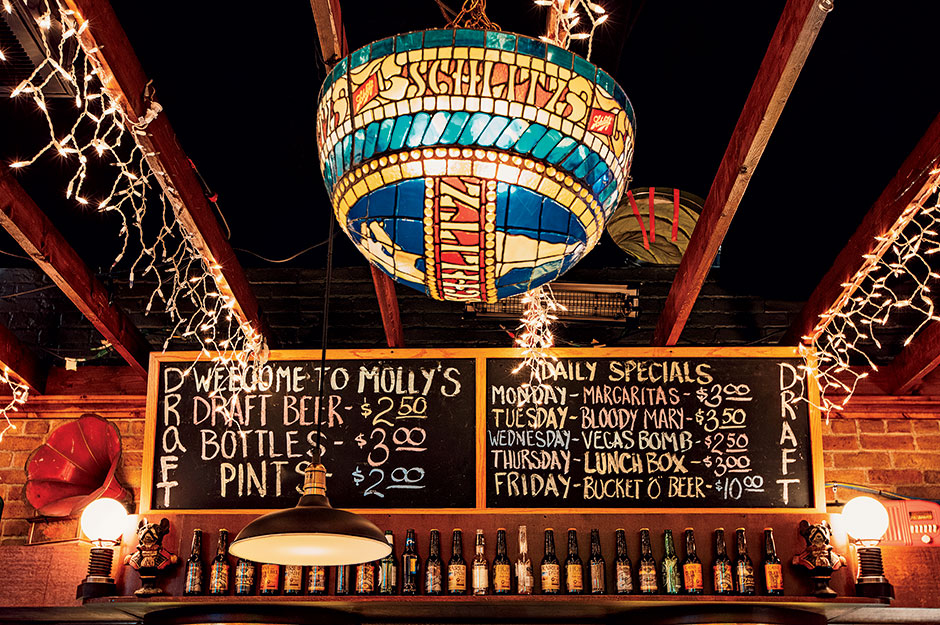 SCHLITZ
Schlitz
Schlitz
SCHLITZ
DRAFT
WELCOME TO MOLLY'S
DRAFT BEER - $2.50
BOTTLES - $3.00
PINTS $2.00
DAILY SPECIALS
MONDAY - MARGARITAS - $3.00
TUESDAY - BLOODY MARY - $3.50
WEDNESDAY - VEGAS BOMB - $2.50
THURSDAY - LUNCH BOX - $3.00
FRIDAY - BUCKET O' BEER - $10.00
DRAFT